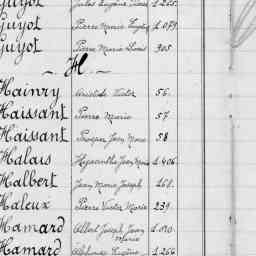 Guyot Jules Eugène 1.265.
Guyot Pierre Marie Eugène 1.079.
Guyot Pierre Marie Louis 905
H
Hainry Aristide Victor 56.
Haissant Pierre Marie 57.
Haissant Prosper Jean Marie 58
Halais Hyacinthe Jean Marie 1.406
Halbert Jean Marie Joseph 468.
Haleux Pierre Victor Marie 239.
Hamard Albert Joseph Jean Marie 1.010.
Hamard Alphonse Eugène 1.266